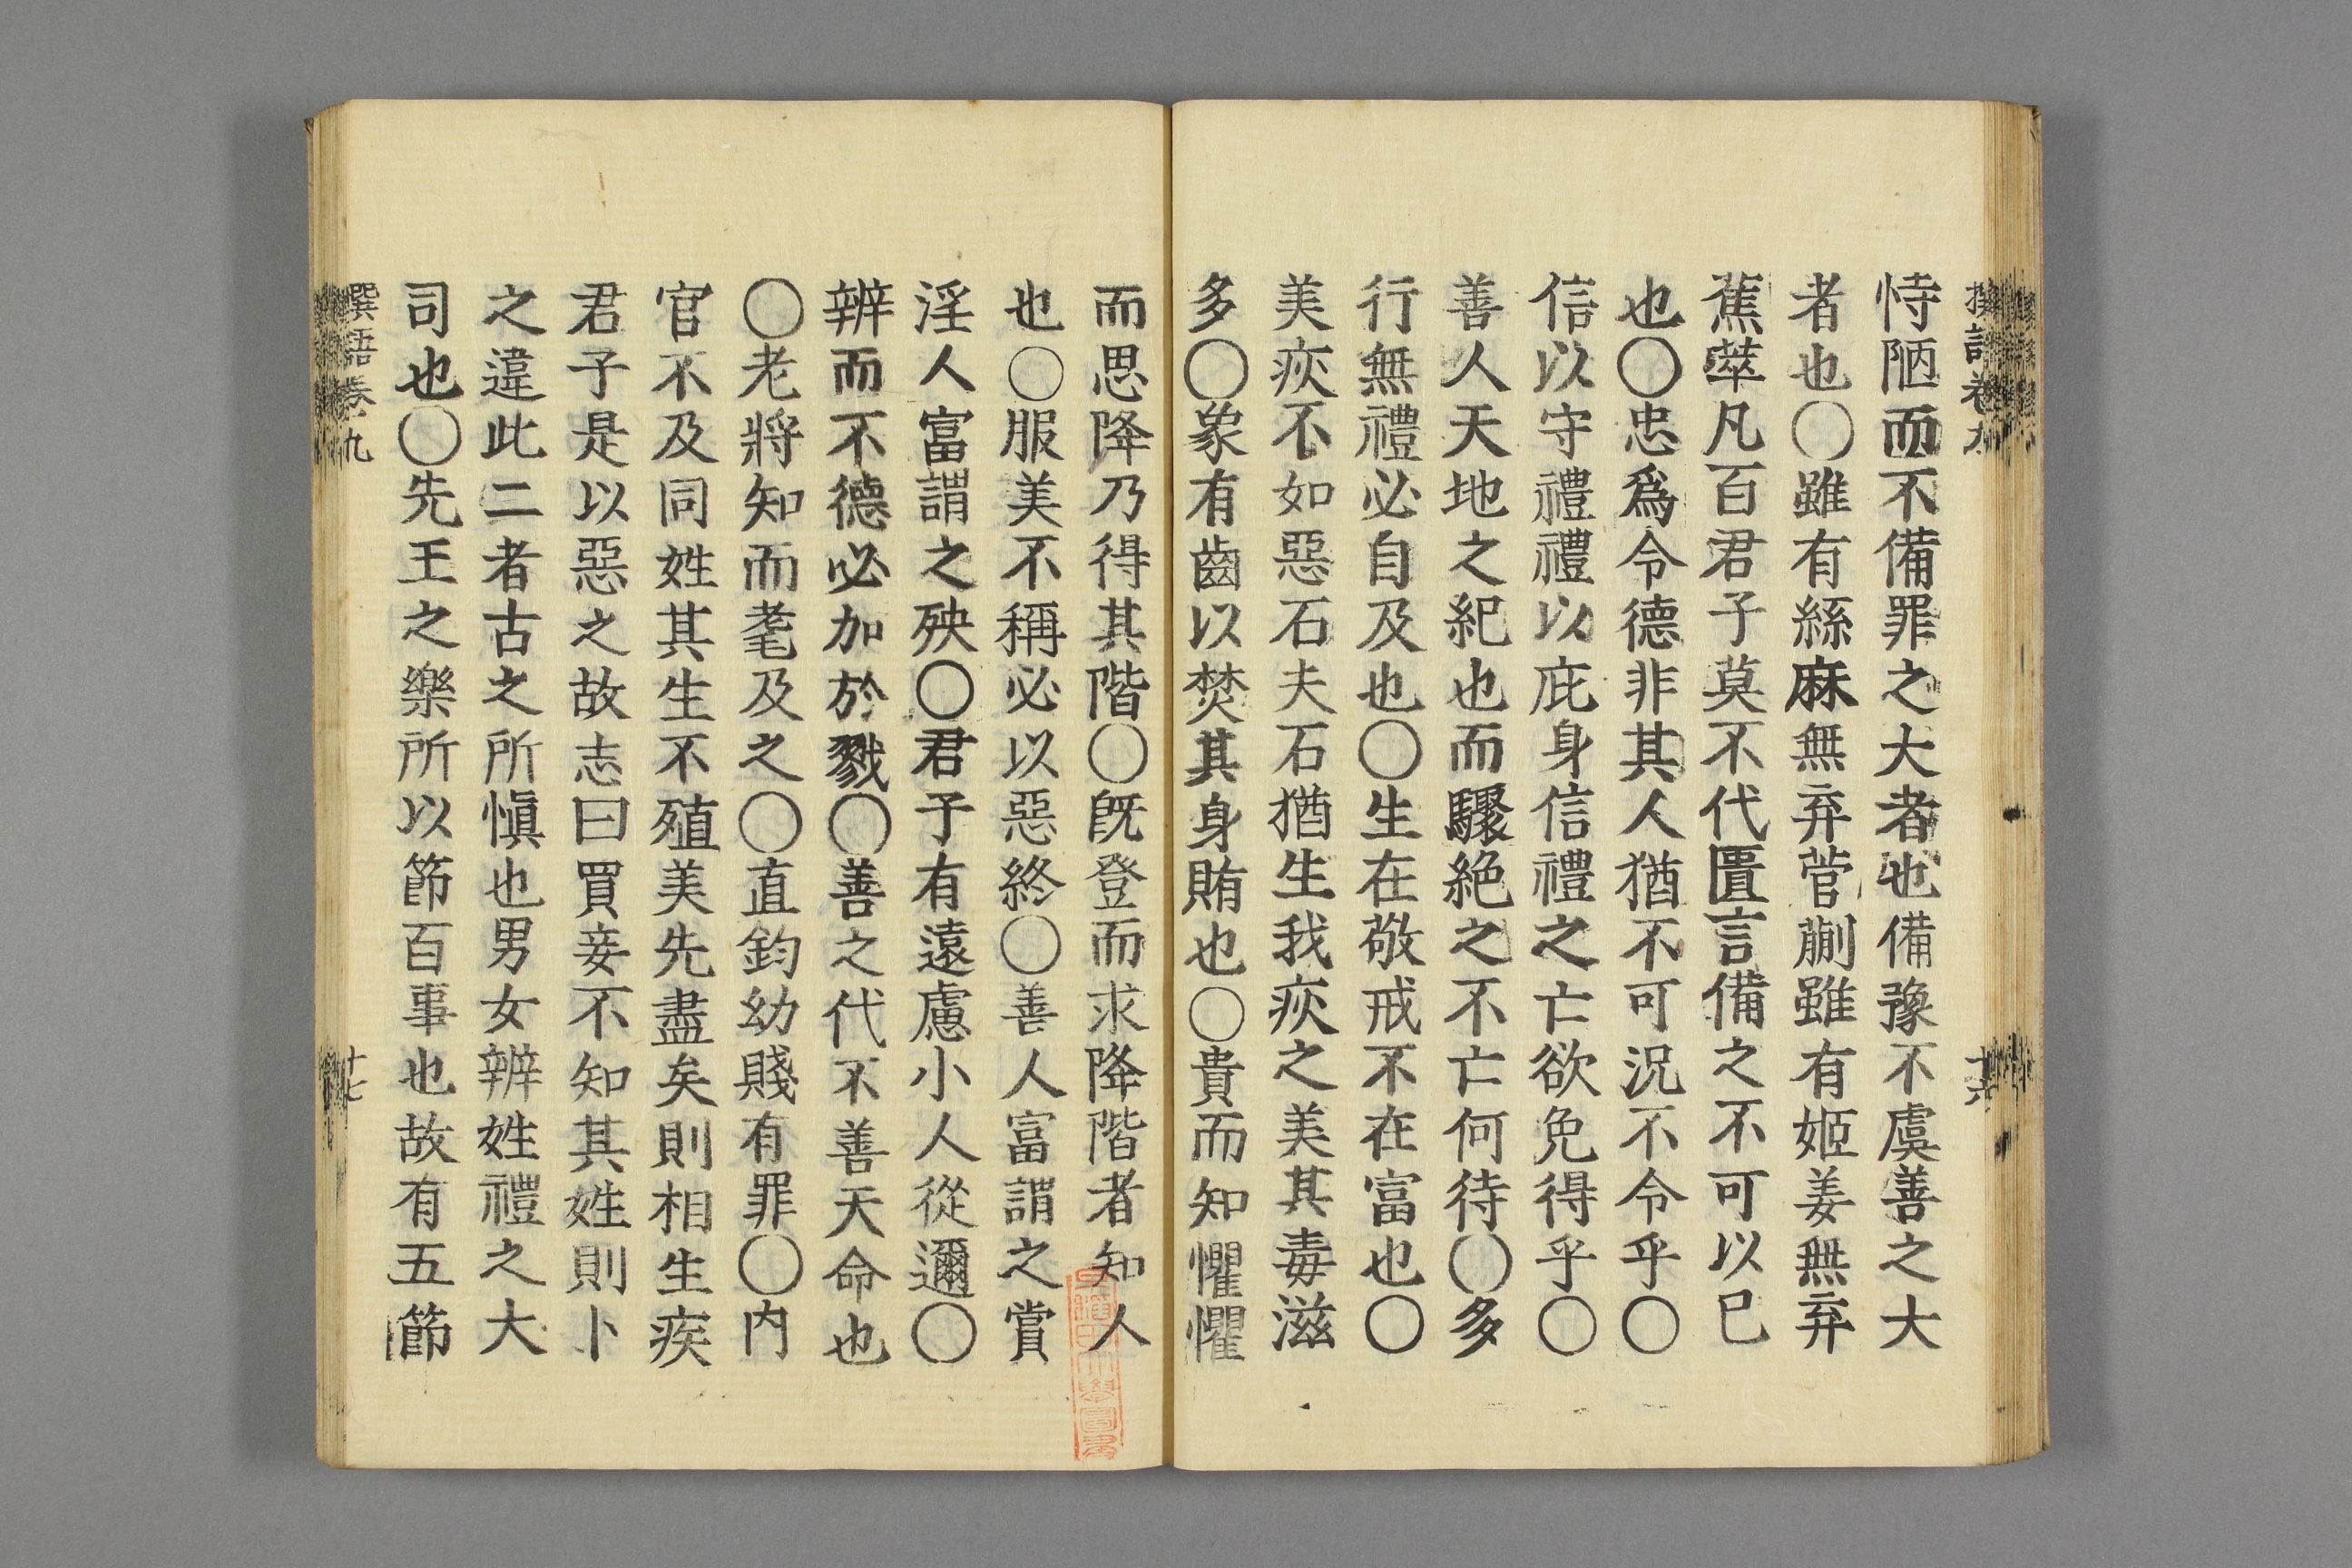 恃陋而不備罪之大者也備豫不虞善之大
者也○雖有絲麻無弃菅蒯雖有姬姜無弃
蕉萃凡百君子莫不代匱言備之不可以已
也○忠爲令德非其人猶不可況不令乎○
信以守禮禮以庇身信禮之亡欲免得乎○
善人天地之紀也而驟絶之不亡何待○多
行無禮必自及也○生在敬戒不在富也○
美疢不如惡石夫石猶生我疢之美其毒滋
多○象有齒以焚其身賄也○貴而知懼懼
而思降乃得其階○旣登而求降階者知人
也○服美不稱必以惡終○善人富謂之賞
淫人富謂之殃○君子有遠慮小人從邇○
辨而不德必加於戮○善之代不善天命也
○老將知而耄及之○直鈞幼賤有罪○内
官不及同姓其生不殖美先盡矣則相生疾
君子是以惡之故志曰買妾不知其姓則卜
之違此二者古之所愼也男女辨姓禮之大
司也○先王之樂所以節百事也故有五節
撰語卷九
十七